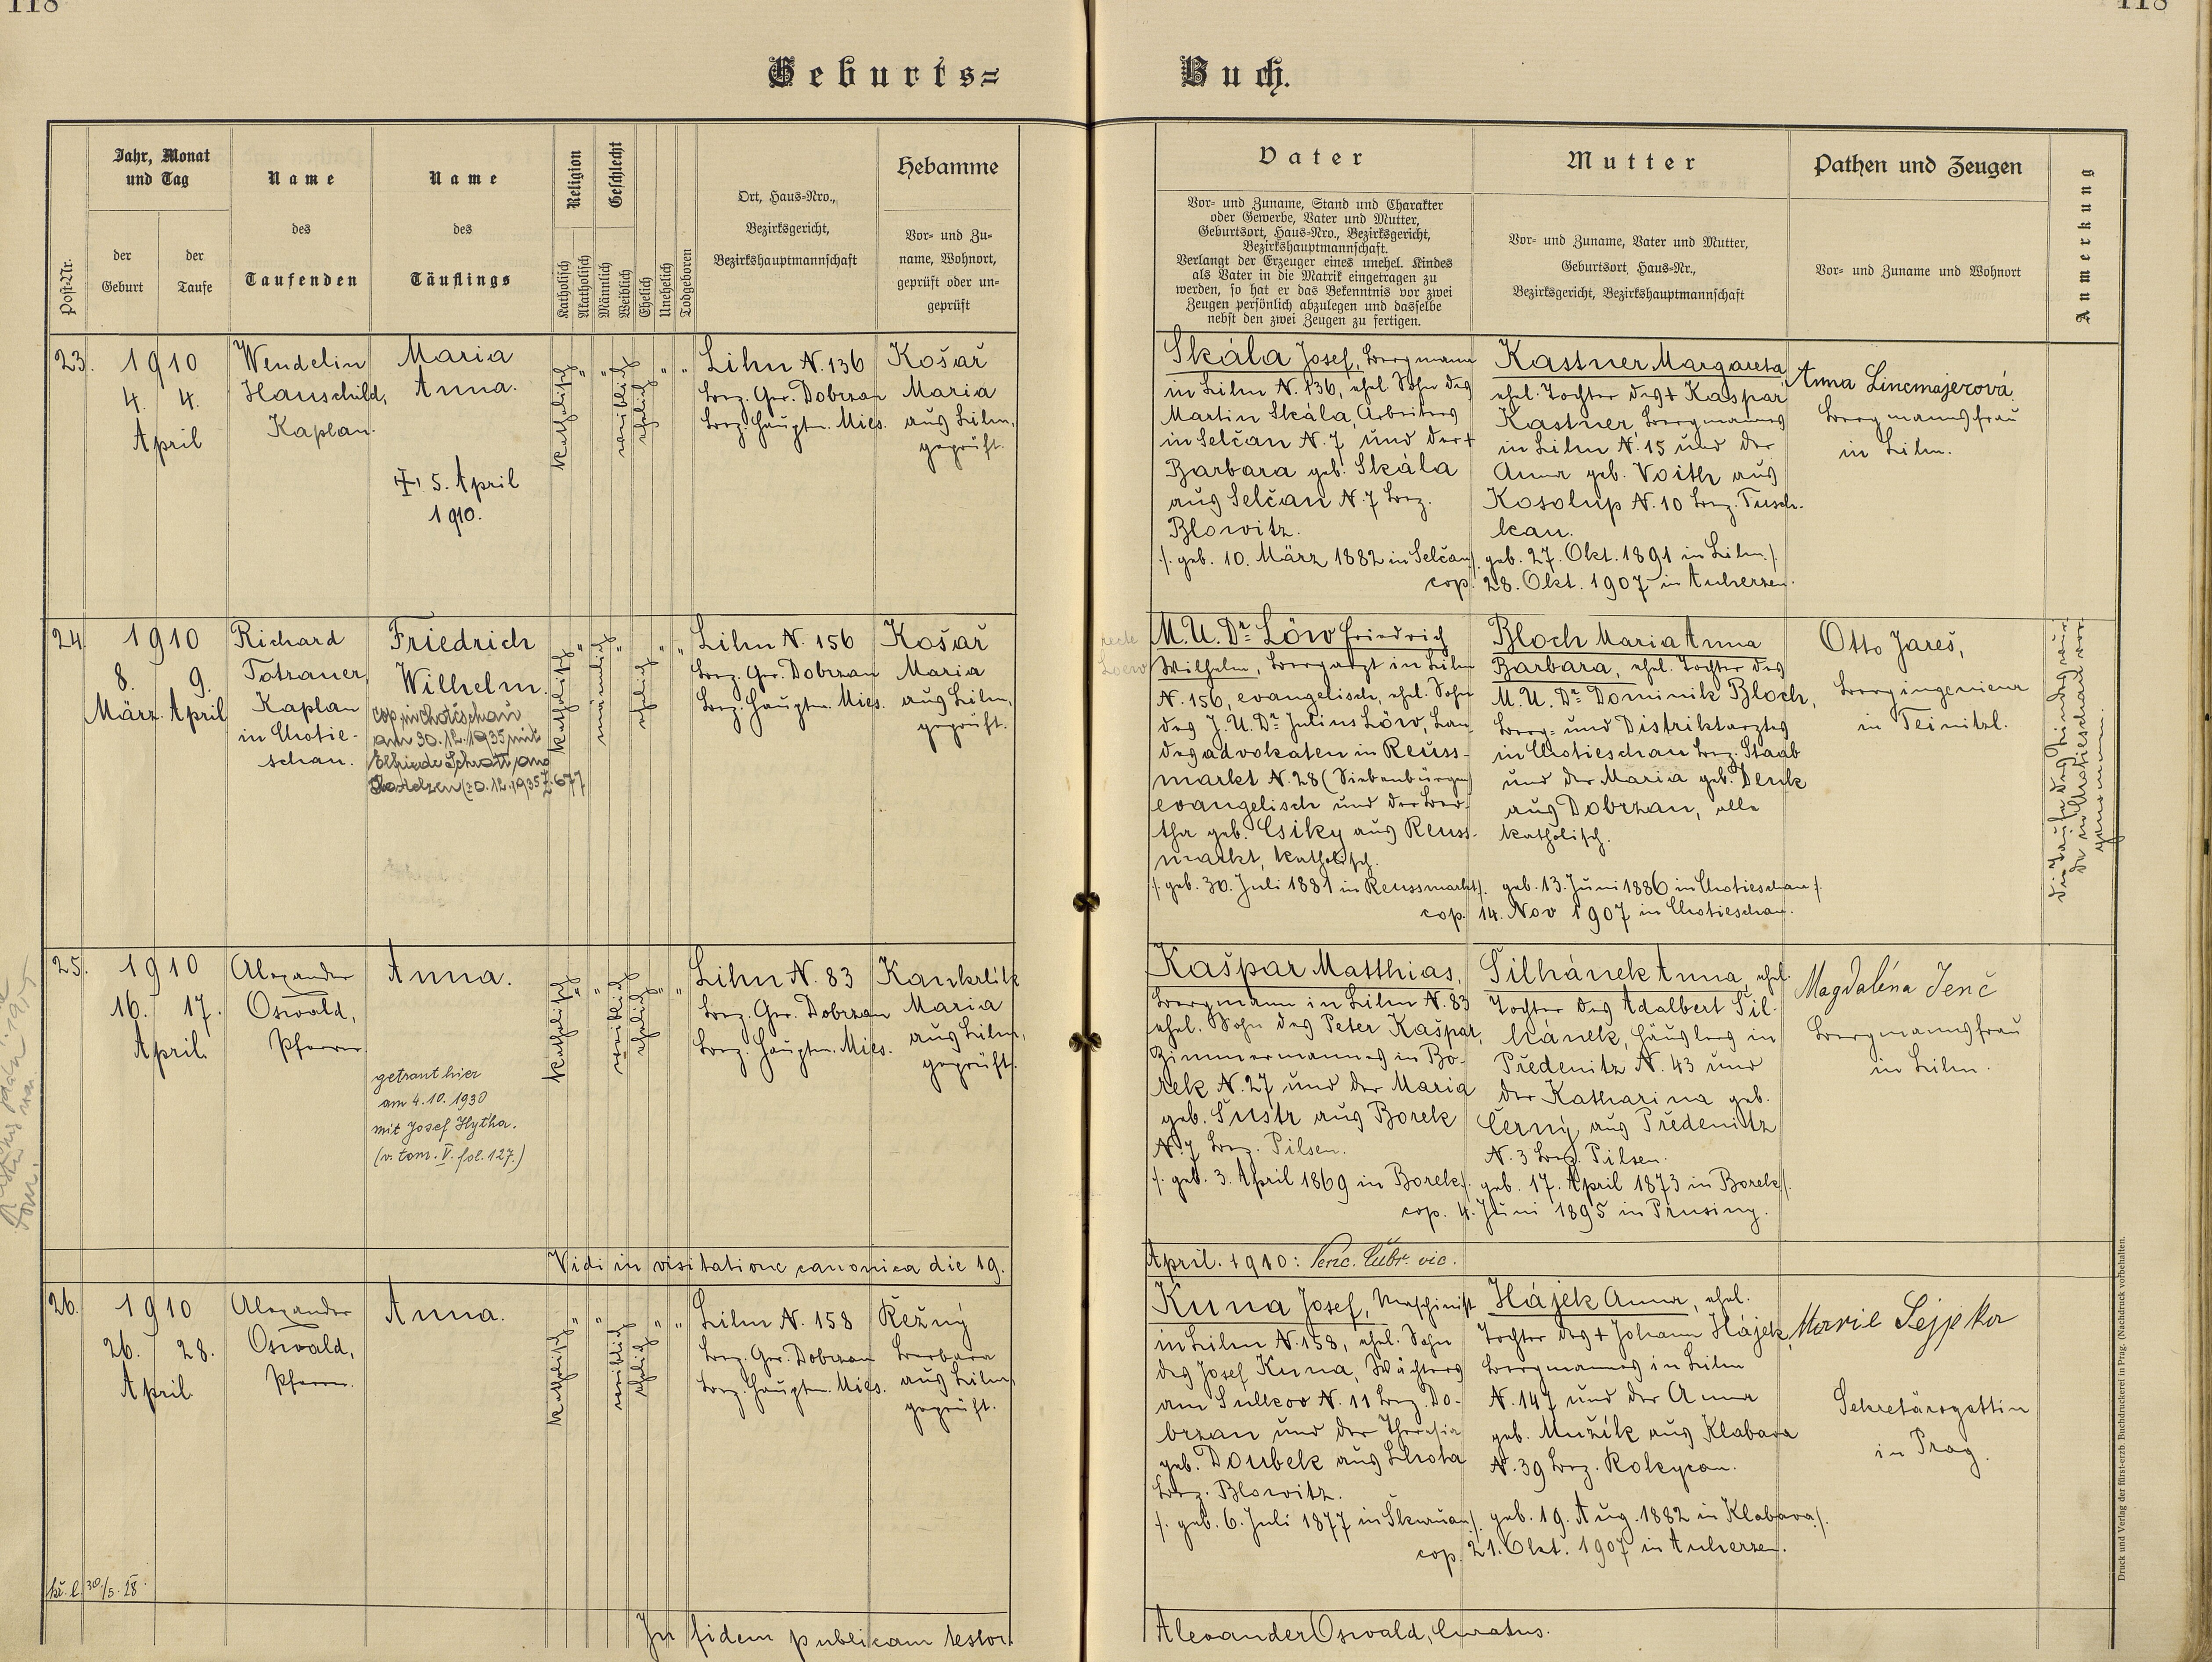 118
118
Geburts=
Buch.
Post-Nr.
Jahr, Monat
und Tag
der
Geburt
der
Taufe
Name
des
Taufenden
Name
des
Täuflings
Religion
Katholisch
Akatholisch
Geschlecht
Männlich
Weiblich
Ehelich
Unehelich
Todgeboren
Ort, Haus=Nro.,
Bezirksgericht,
Bezirkshauptmannschaft
Hebamme
Vor= und Zu=
name, Wohnort,
geprüft oder un=
geprüft
Vater
Vor= und Zuname, Stand und Charakter
oder Gewerbe, Vater und Mutter,
Geburtsort, Haus=Nro., Bezirksgericht,
Bezirkshauptmannschaft.
Verlangt der Erzeuger eines unehel. Kindes
als Vater in die Matrik eingetragen zu
werden, so hat er das Bekenntnis vor zwei
Zeugen persönlich abzulegen und dasselbe
nebst den zwei Zeugen zu fertigen.
Mutter
Vor= und Zuname, Vater und Mutter,
Geburtsort, Haus=Nr.,
Bezirksgericht, Bezirkshauptmannschaft
Pathen und Zeugen
Vor= und Zuname und Wohnort
Anmerkung
23.
1910
4. 4.
April
Wendelin
Hauschild,
Kaplan.
Maria
Anna.
5. April
1910.
katholisch
"
"
weiblich
ehelich
"
"
Lihn N. 136
Bez. Ger. Dobrzan
Bez. Hauptm. Mies.
Košař
Maria
aus Lihn,
geprüft.
Skála Josef, Bergmann
in Lihn N. 136, ehel. Sohn des
Martin Skála, Arbeiters
in Selčan N. 7 und der +
Barbara geb. Skála
aus Selčan N. 7 Bez.
Blowitz.
/. geb. 10. März 1882 in Selčan/.
Kastner Margareta
ehel. Tochter des + Kaspar
Kastner, Bergmannes
in Lihn N. 15 und der
Anna geb. Voith aus
Kosolup N. 10 Bez. Tusch-
kau.
geb. 27. Okt. 1891 in Lihn./.
cop. 28. Okt. 1907 in Auherzen.
Anna Lincmajerová
Bergmannsfrau
in Lihn.
24.
1910
8. 9.
März. April
Richard
Totzauer,
Kaplan
in Chotie-
schau.
Friedrich
Wilhelm.
cop. in Chotieschau
am 30.12.1935 mit
Elfriede Schrott aus
katholisch
"
männlich
"
ehelich
"
"
Lihn N. 156
Bez. Ger. Dobrzan
Bez. Hauptm. Mies.
Košař
Maria
aus Lihn,
geprüft.
recte
Loew
M.U.Dr. Löw Friedrich
Wilhelm, Bergarzt in Lihn
N. 156, evangelisch, ehel. Sohn
des J.U.Dr. Julius Löw, Lan-
desadvokaten in Reuss-
markt N. 28 (Siebenbürgen)
evangelisch und der Ber-
tha geb. Csiky aus Reuss-
markt, katholisch.
/. geb. 30. Juli 1881 in Reussmarkt/.
Bloch Maria Anna
Barbara, ehel. Tochter des
M.U.Dr. Dominik Bloch,
Berg- und Distriktarztes
in Chotieschau Bez. Staab
und der Maria geb. Denk
aus Dobrzan, alle
katholisch.
geb. 13. Juni 1886 in Chotieschau/.
cop. 14. Nov 1907 in Chotieschau.
Otto Jareš,
Bergingenieur
in Teinitzl.
Die Taufe des Kindes wur-
de in Chotieschau vor-
genommen.
25.
1910
16. 17.
April.
Alexander
Oswald,
Pfarrer.
Anna.
getraut hier
am 4.10.1930
mit Josef Hytha.
(v. tom. V. fol. 127.)
katholisch
"
"
weiblich
ehelich
"
"
Lihn N. 83
Bez. Ger. Dobrzan
Bez. Hauptm. Mies.
Kankrlík
Maria
aus Lihn,
geprüft.
Kašpar Matthias,
Bergmann in Lihn N. 83
ehel. Sohn des Peter Kašpar,
Zimmermannes in Bo-
rek N. 27 und der Maria
geb. Šustr aus Borek
N. 7 Bez. Pilsen.
/. geb. 3. April 1869 in Borek/.
Šilhánek Anna, ehel.
Tochter des Adalbert Šil-
hánek, Häuslers in
Předenitz N. 43 und
der Katharina geb.
Černý aus Předenitz
N. 3 Bez. Pilsen.
geb. 17. April 1873 in Borek/.
cop. 4. Juni 1895 in Prusiny.
Magdaléna Jenč
Bergmannsfrau
in Lihn.
Vidi in visitatione canonica die 19.
April. 1910:
26.
1910
26. 28.
April
Alexander
Oswald,
Pfarrer.
Anna.
katholisch
"
"
weiblich
ehelich
"
"
Lihn N. 158
Bez. Ger. Dobrzan
Bez. Hauptm. Mies.
Řežný
Barbara
aus Lihn,
geprüft.
Kuna Josef, Maschinist
in Lihn N. 158, ehel. Sohn
des Josef Kuna, Wächters
am Sulkov N. 11 Bez. Do-
brzan und der Theresia
geb. Doubek aus Lhota
Bez. Blowitz.
/. geb. 6. Juli 1877 in Skurňan/.
Hájek Anna, ehel.
Tochter des + Johann Hájek,
Bergmannes in Lihn
N. 147 und der Anna
geb. Mužík aus Klabava
N. 39 Bez. Rokycan.
geb. 19. Aug. 1882 in Klabava/.
cop. 21. Okt. 1907 in Auherzen.
Marie Sejpka
Sekretärsgattin
in Prag.
In fidem publicam testor
Alexander Oswald, Curatus.
Druck und Verlag der fürst-erzb. Buchdruckerei in Prag. (Nachdruck vorbehalten.